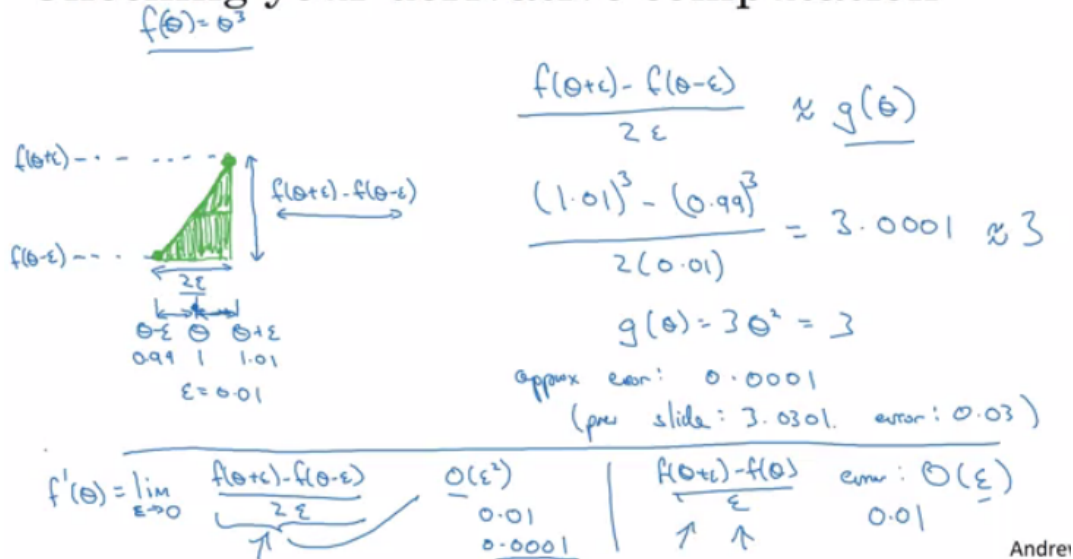 f(θ) = θ³
f(θ+ε) - f(θ-ε)
2ε
≈ g(θ)
f(θ+ε)
f(θ+ε) - f(θ-ε)
f(θ-ε)
2ε
θ-ε θ θ+ε
0.99 1 1.01
ε = 0.01
(1.01)³ - (0.99)³
2(0.01)
= 3.0001 ≈ 3
g(θ) = 3θ² = 3
approx error: 0.0001
(prev slide: 3.0301. error: 0.03)
f'(θ) = lim ε→0
f(θ+ε) - f(θ-ε)
2ε
O(ε²)
0.01
0.0001
f(θ+ε) - f(θ)
ε
error: O(ε)
0.01
Andrew